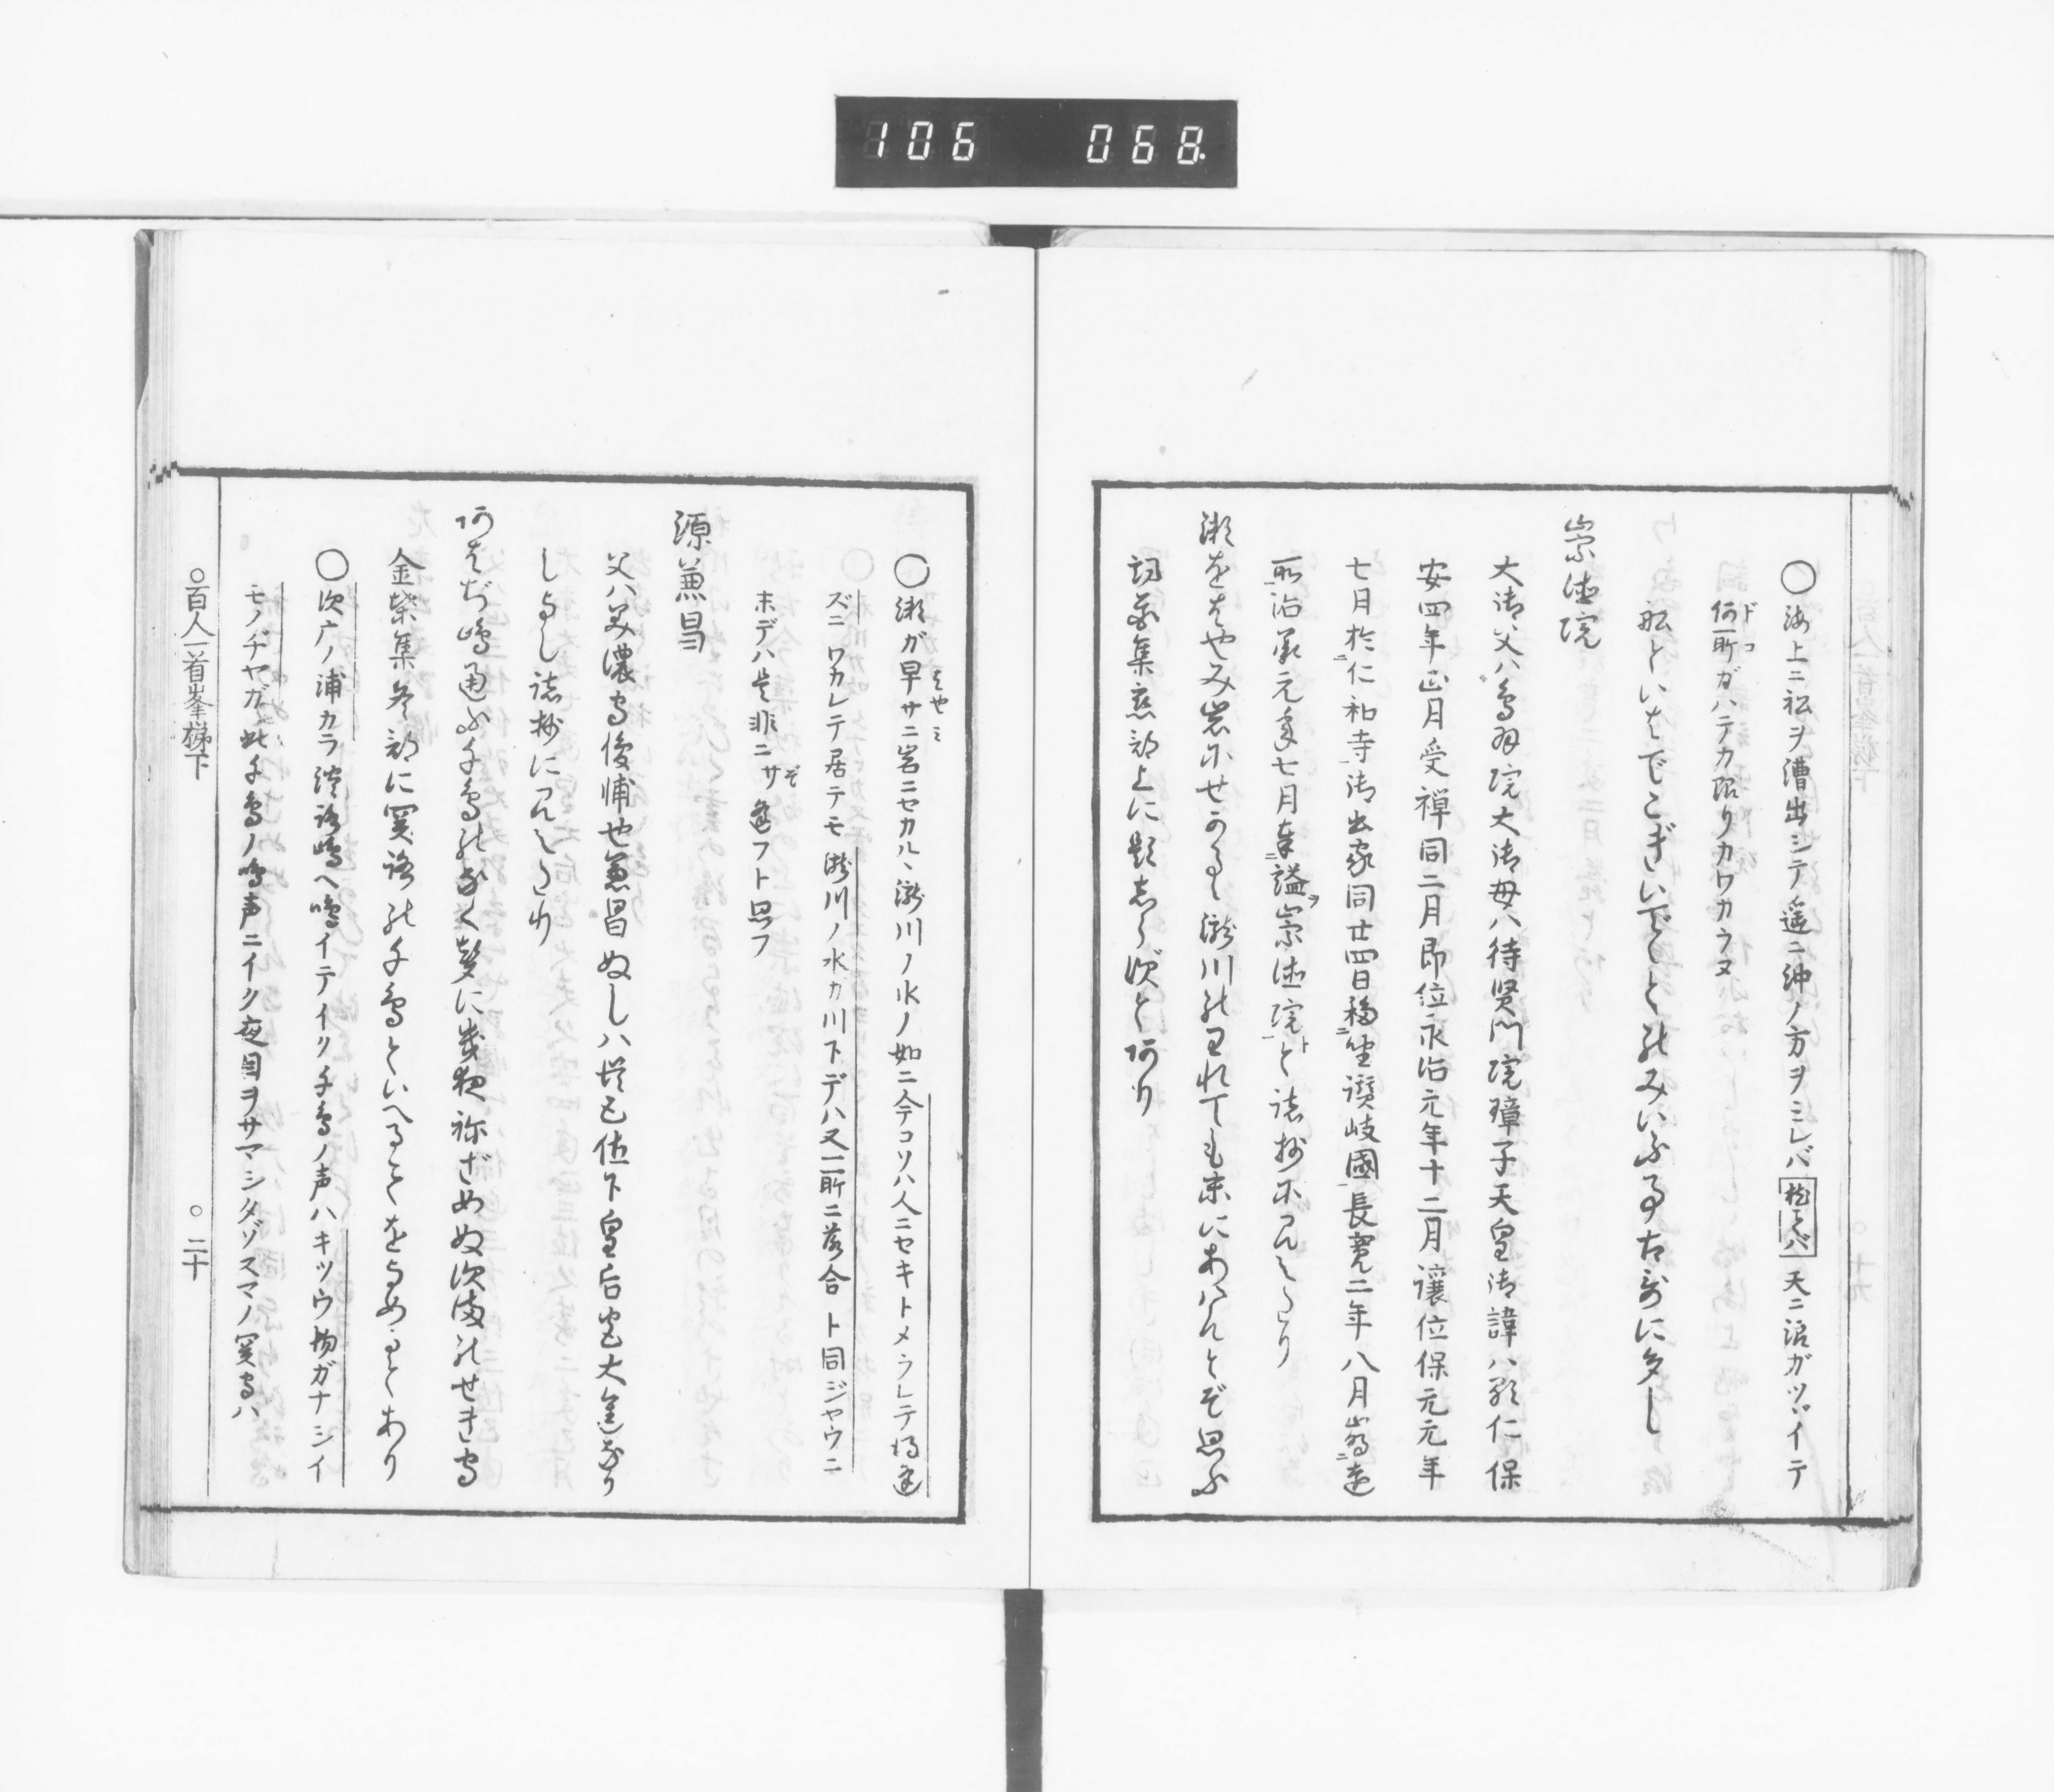 106 068.
○海上ニ松ヲ漕出シテ遥ニ沖ノ方ヲミレバ 天ニ沼ガツヾイテ
何所ガハテカ限リカワカラヌ
舩といはでこぎいでとのみいふ事古哥に多し
崇徳院
大御父ハ鳥羽院大御母ハ待賢門院璋子天皇御諱ハ顕仁保
安四年正月受禅同二月即位永治元年十二月譲位保元元年
七月於仁和寺御出家同廿四日移坐讃岐國長寛二年八月崩遠
所治承元年七月奉謚崇徳院と諸抄にみえたり
瀬をはやみ岩にせかるゝ瀧川のわれても末にあはんとぞ思ふ
詞花集恋部上に題しらずとあり
○瀬ガ早サニ岩ニセカルヽ瀧川ノ水ノ如ニ今コソハ人ニセキトメラレテ得逢
ズニワカレテ居テモ瀧川ノ水カ川下デハ又一所ニ落合ト同ジヤウニ
末デハ是非ニサ逢フト思フ
源兼昌
父ハ美濃守俊輔也兼昌ぬしハ従五位下皇后宮大進なり
しよし諸抄にみえたり
あはぢ嶋通ふ千鳥のなく聲に幾夜ねざめぬ次磨のせき守
金葉集冬部に関路の千鳥といへることをよめるとあり
○次广ノ浦カラ淡路嶋ヘ鳴イテイク千鳥ノ声ハキツウ物ガナシイ
モノヂヤガ此千鳥ノ鳴声ニイク夜目ヲサマシタゾスマノ関守ハ
○百人一首峯梯下 ○二十